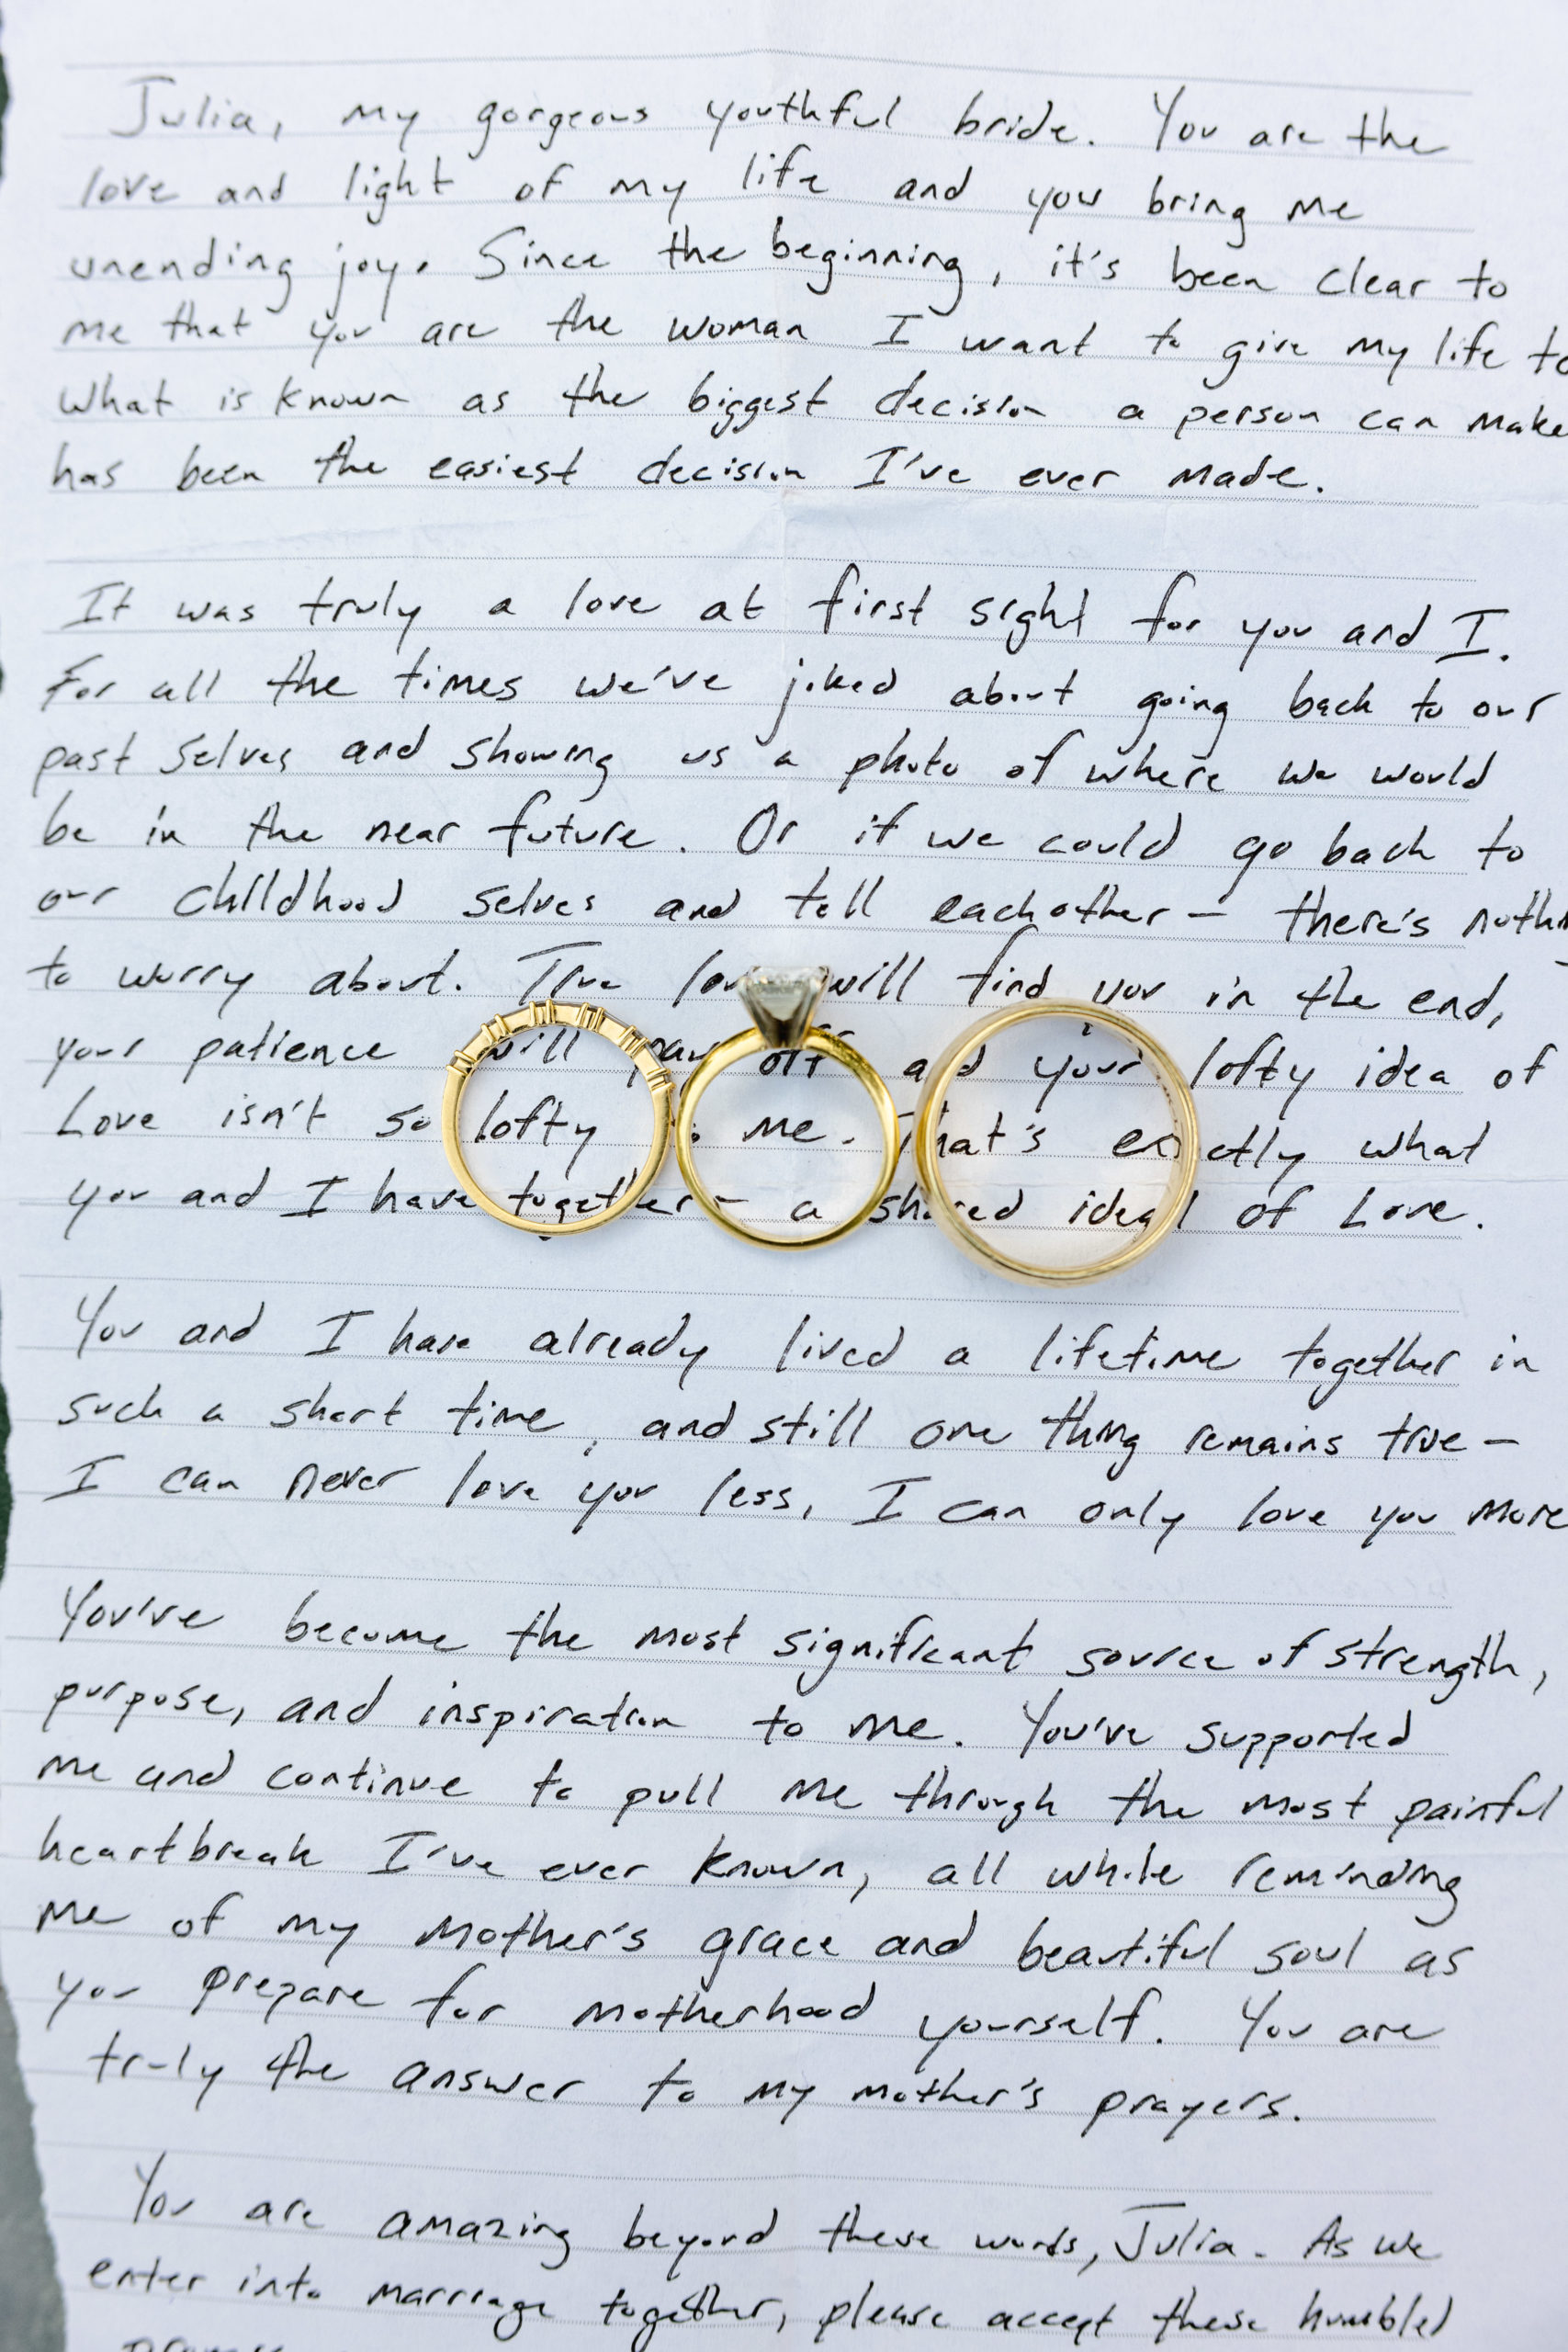 Julia, my gorgeous youthful bride. You are the
love and light of my life and you bring me
unending joy. Since the beginning, it's been clear to
me that you are the woman I want to give my life to
What is known as the biggest decision a person can make
has been the easiest decision I've ever made.
It was truly a love at first sight for you and I.
For all the times we've joked about going back to our
past selves and showing us a photo of where we would
be in the near future. Or if we could go back to
our childhood selves and tell eachother - there's nothin
to worry about. True love will find you in the end,
your patience will pay off and your lofty idea of
Love isn't so lofty to me. That's exactly what
you and I have together - a shared ideal of Love.
You and I have already lived a lifetime together in
such a short time, and still one thing remains true -
I can never love you less, I can only love you more
You've become the most significant source of strength,
purpose, and inspiration to me. You've supported
me and continue to pull me through the most painful
heartbreak I've ever known, all while reminding
me of my mother's grace and beautiful soul as
you prepare for motherhood yourself. You are
truly the answer to my mother's prayers.
You are amazing beyond these words, Julia. As we
enter into marriage together, please accept these humbled